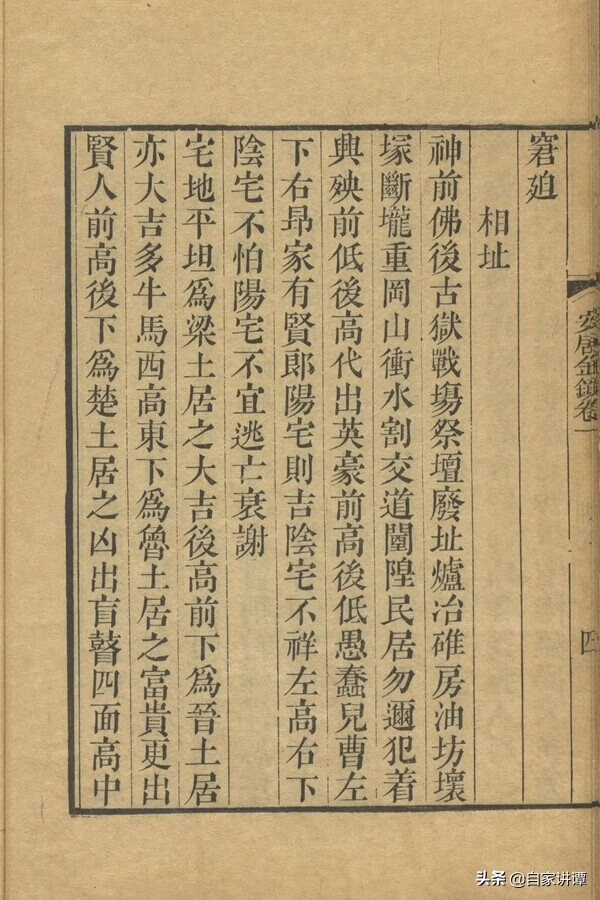 安居金鏡卷一
四
窘迫
相址
神前佛後古獄戰塲祭壇廢址爐冶碓房油坊壞
塚斷壠重岡山衝水割交道闤隍民居勿邇犯着
興殃前低後高代出英豪前高後低愚蠢兒曹左
下右昻家有賢郎陽宅則吉陰宅不祥左高右下
陰宅不怕陽宅不宜逃亡衰謝
宅地平坦爲梁土居之大吉後高前下爲晉土居
亦大吉多牛馬西高東下爲魯土居之富貴更出
賢人前高後下爲楚土居之凶出盲瞽四面高中
头条 @自家讲谭